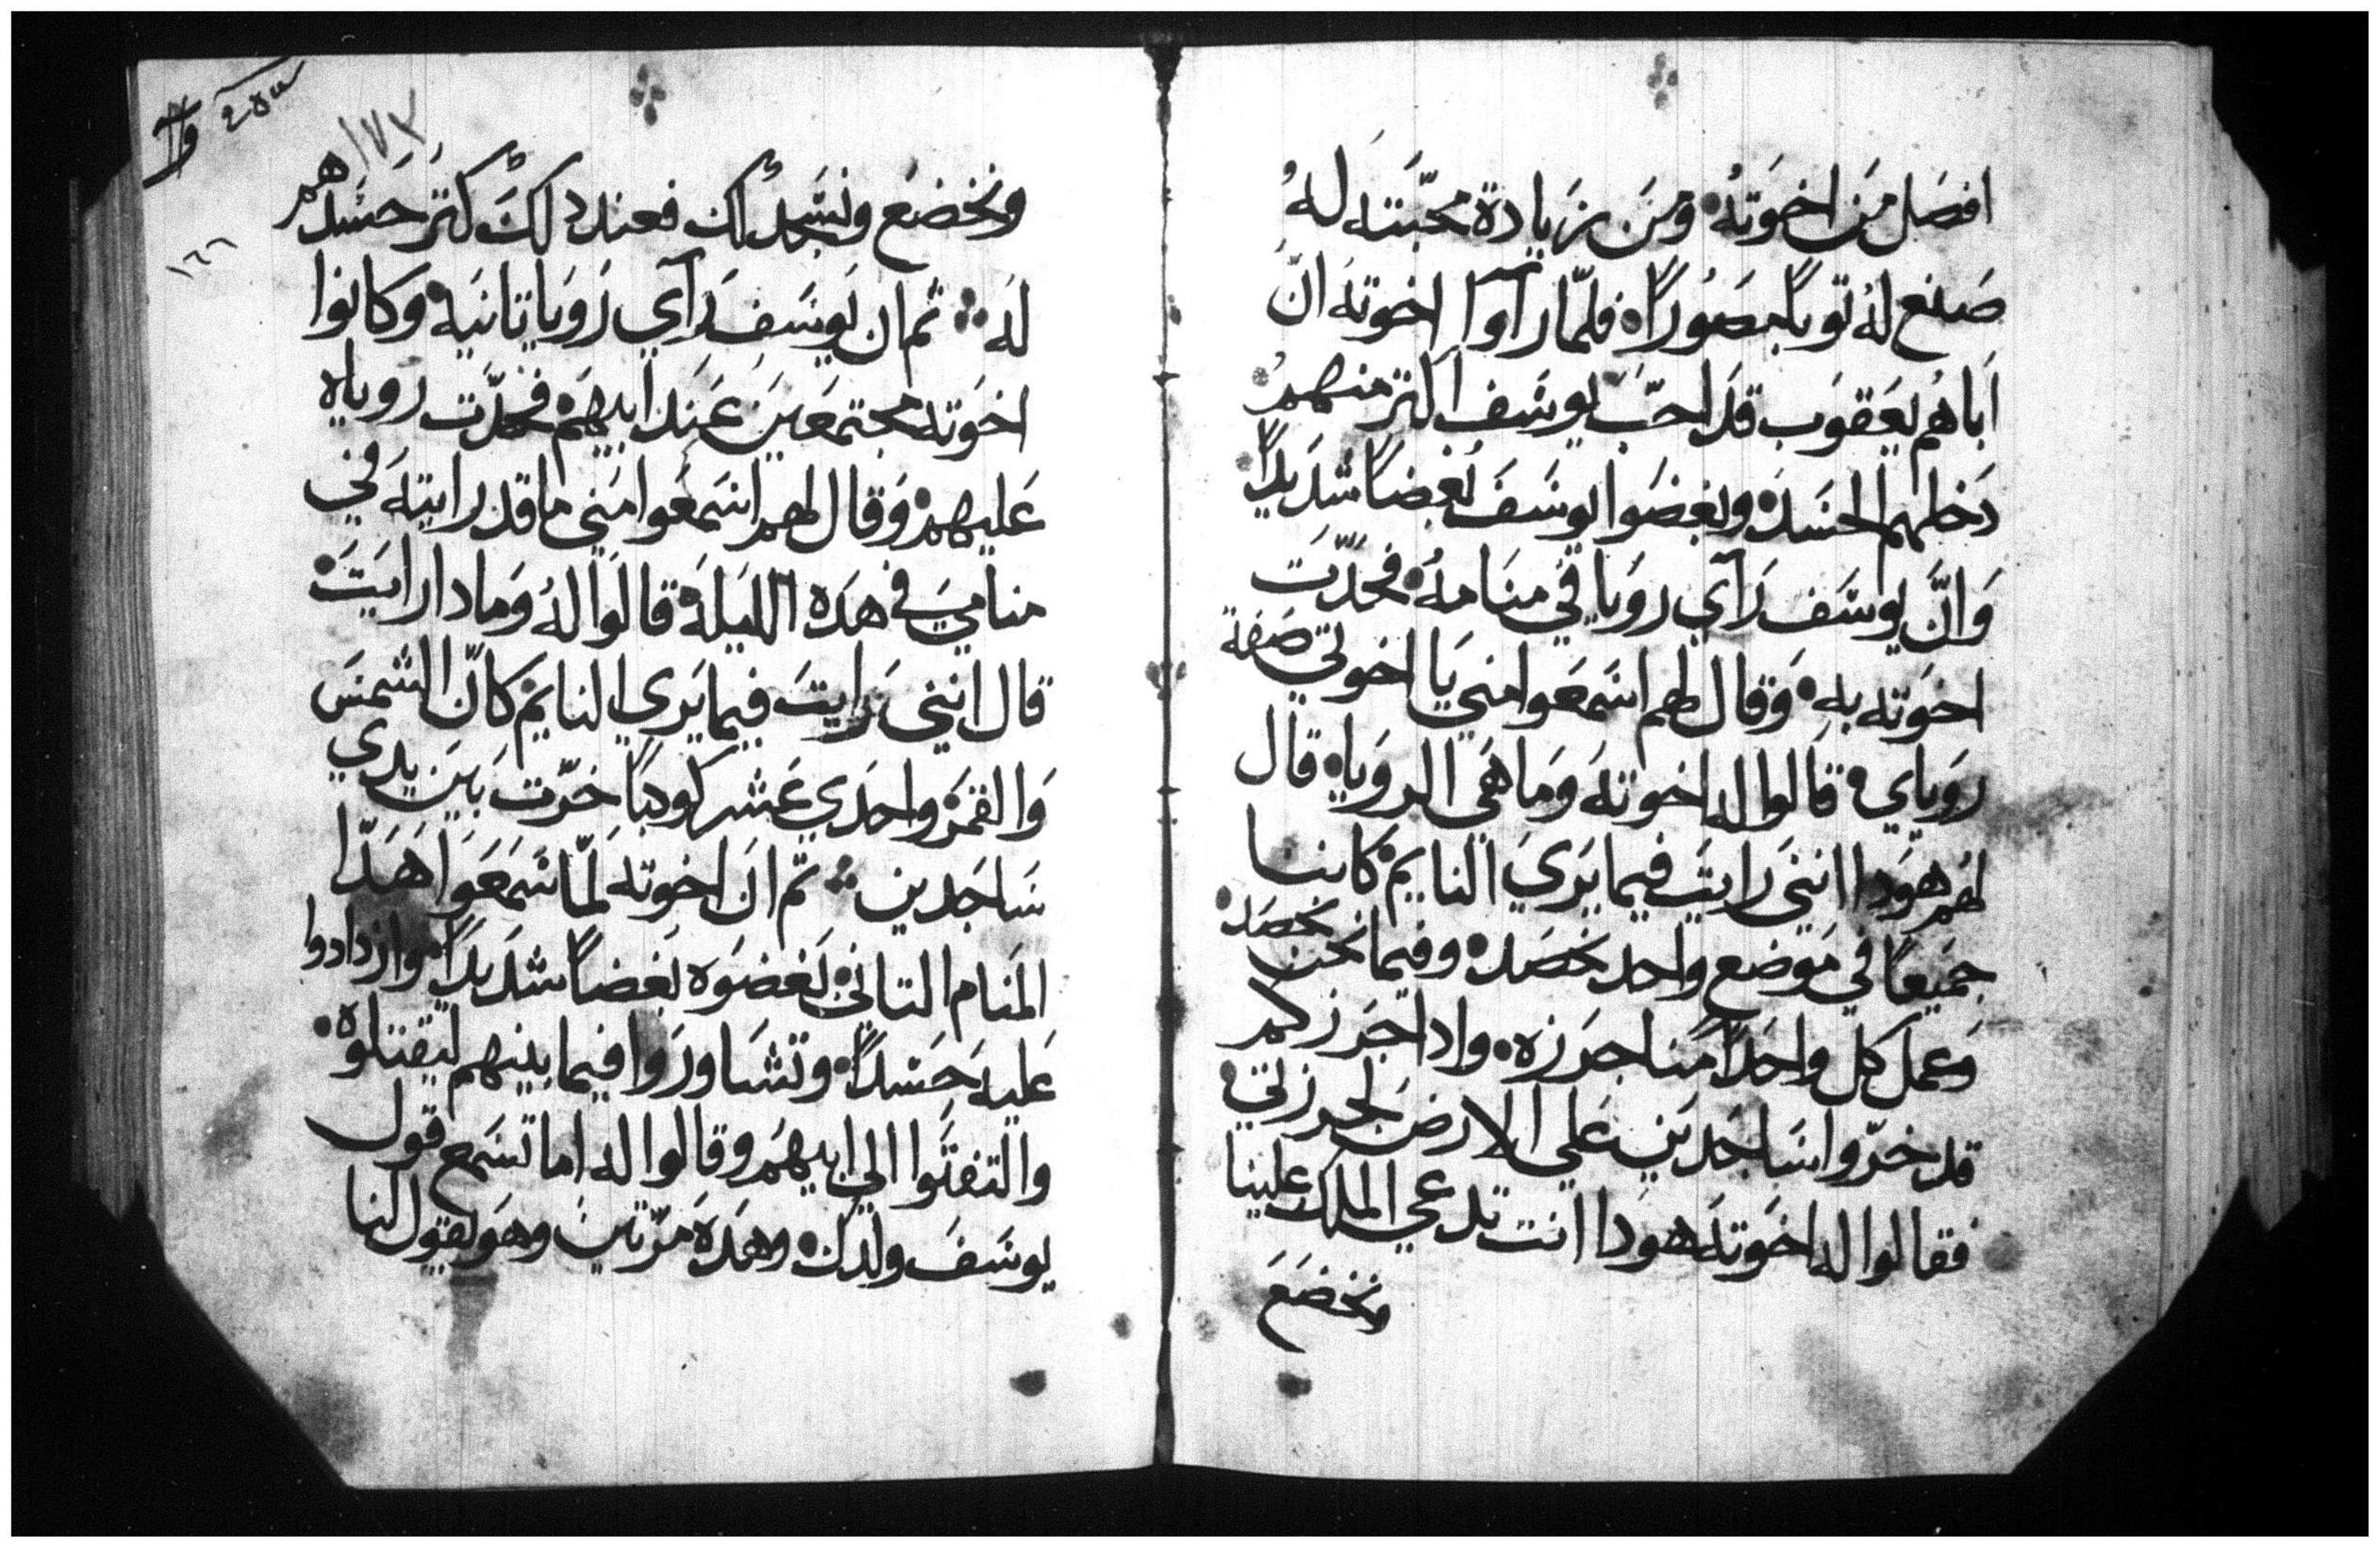 افضل من اخوته ومن زيادة محبته له
صنع له توباً مصوراً فلما رآوا اخوته ان
اباهم يعقوب قد احب يوسف اكتر منهم
دخلهم الحسد وبغضوا يوسف بغضاً شديداً
وان يوسف رآي رويا في منامه فحدت
اخوته به وقال لهم اسمعوا مني يا اخوتي صفة
روياي قالوا له اخوته وما هي الرويا قال
لهم هودا انني رايت فيما يري النايم كاننا
جميعاً في موضع واحد نحصد وفيما نحن نحصد
وعمل كل واحداً منا جرزه وادا جرزكم
قد خروا ساجدين علي الارض لجرزتي
فقالوا له اخوته هودا انت تدعي الملك علينا
ونخضع
١٧٣
١٦٦
ونخضع ونسجد لك فعند دلك كتر حسدهم
له ثم ان يوسف رآي رويا تانيه وكانوا
اخوته مجتمعين عند ابيهم فحدت روياه
عليهم وقال لهم اسمعوا مني ما قد رايته في
منامي في هده الليلة قالوا له وما دا رايت
قال انني رايت فيما يري النايم كان الشمس
والقمر واحدي عشر كوكباً خرت بين يدي
ساجدين تم ان اخوته لما سمعوا هدا
المنام التاني بغضوه بغضاً شديداً وازدادوا
عليه حسداً وتشاوروا فيما بينهم ليقتلوه
والتفتوا الي ابيهم وقالوا له اما تسمع قول
يوسف ولدك وهده مرتين وهو يقول لنا